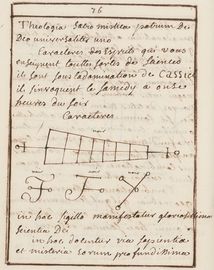 76
Theologia Ratio mistica patrum Dei
Deo universalites uno
Caracteres des Esprits qui vous
enseignent touttes sortes de siences
il sont sous la domination de Cassiel
il s'invoquent le samedy a onse
heures du soir
Caracteres
in hoc sigillo manifestatur gloriosissima
scientia Dei
in hoc docentur via sapientia
et misteria eorum profundissima